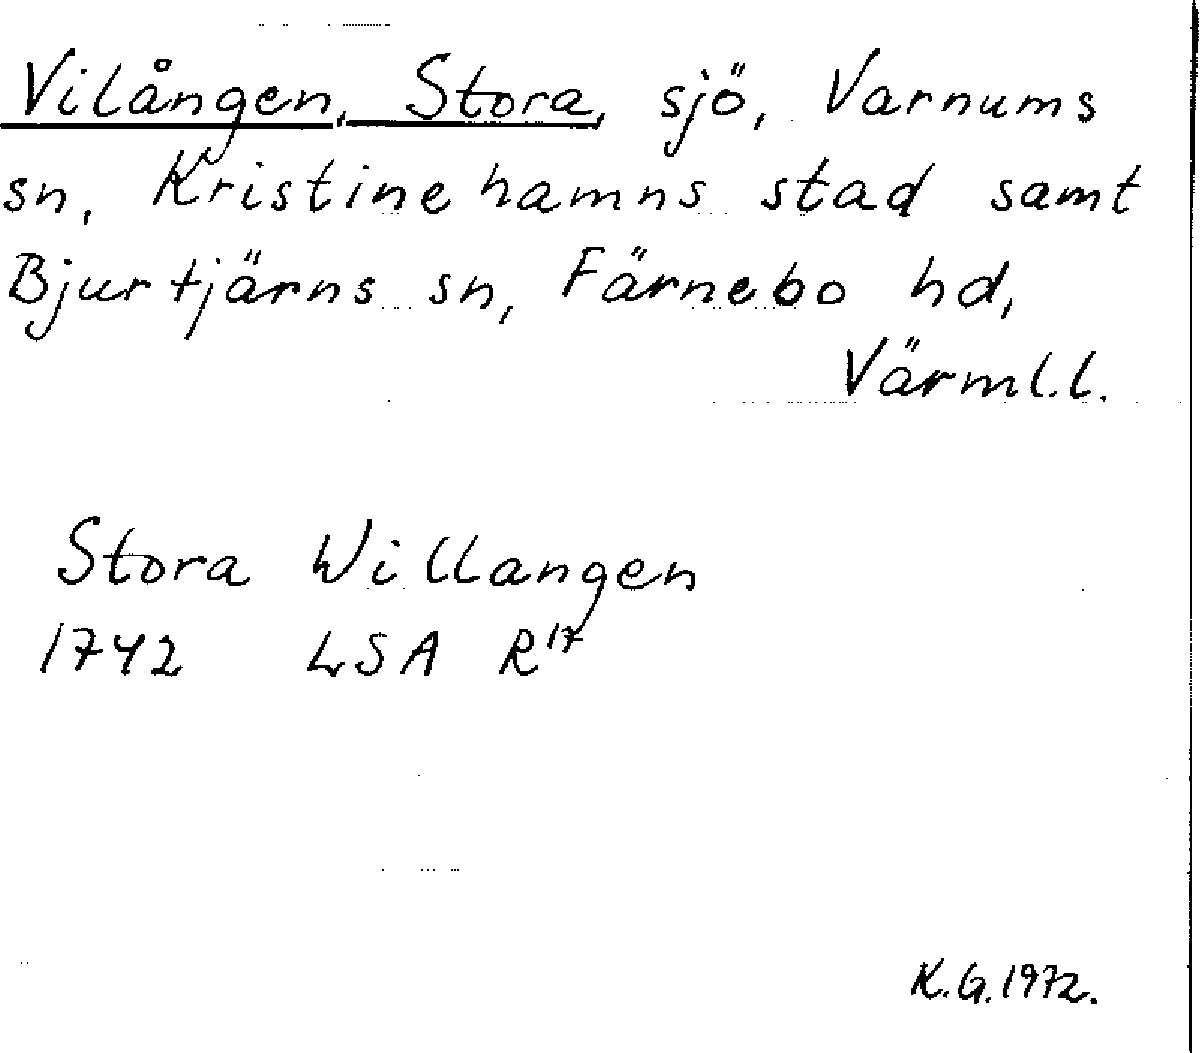 Vilången, Stora, sjö, Varnums
sn, Kristinehamns stad samt
Bjurtjärns sn, Färnebo hd,
Värml.l.
Stora Willangen
1742 LSA R17
K.G.1972.